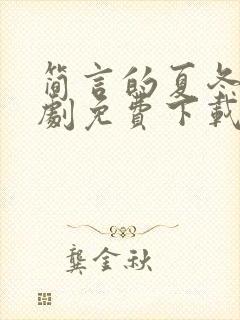 简言的夏冬
剧免费下载
龚金秋